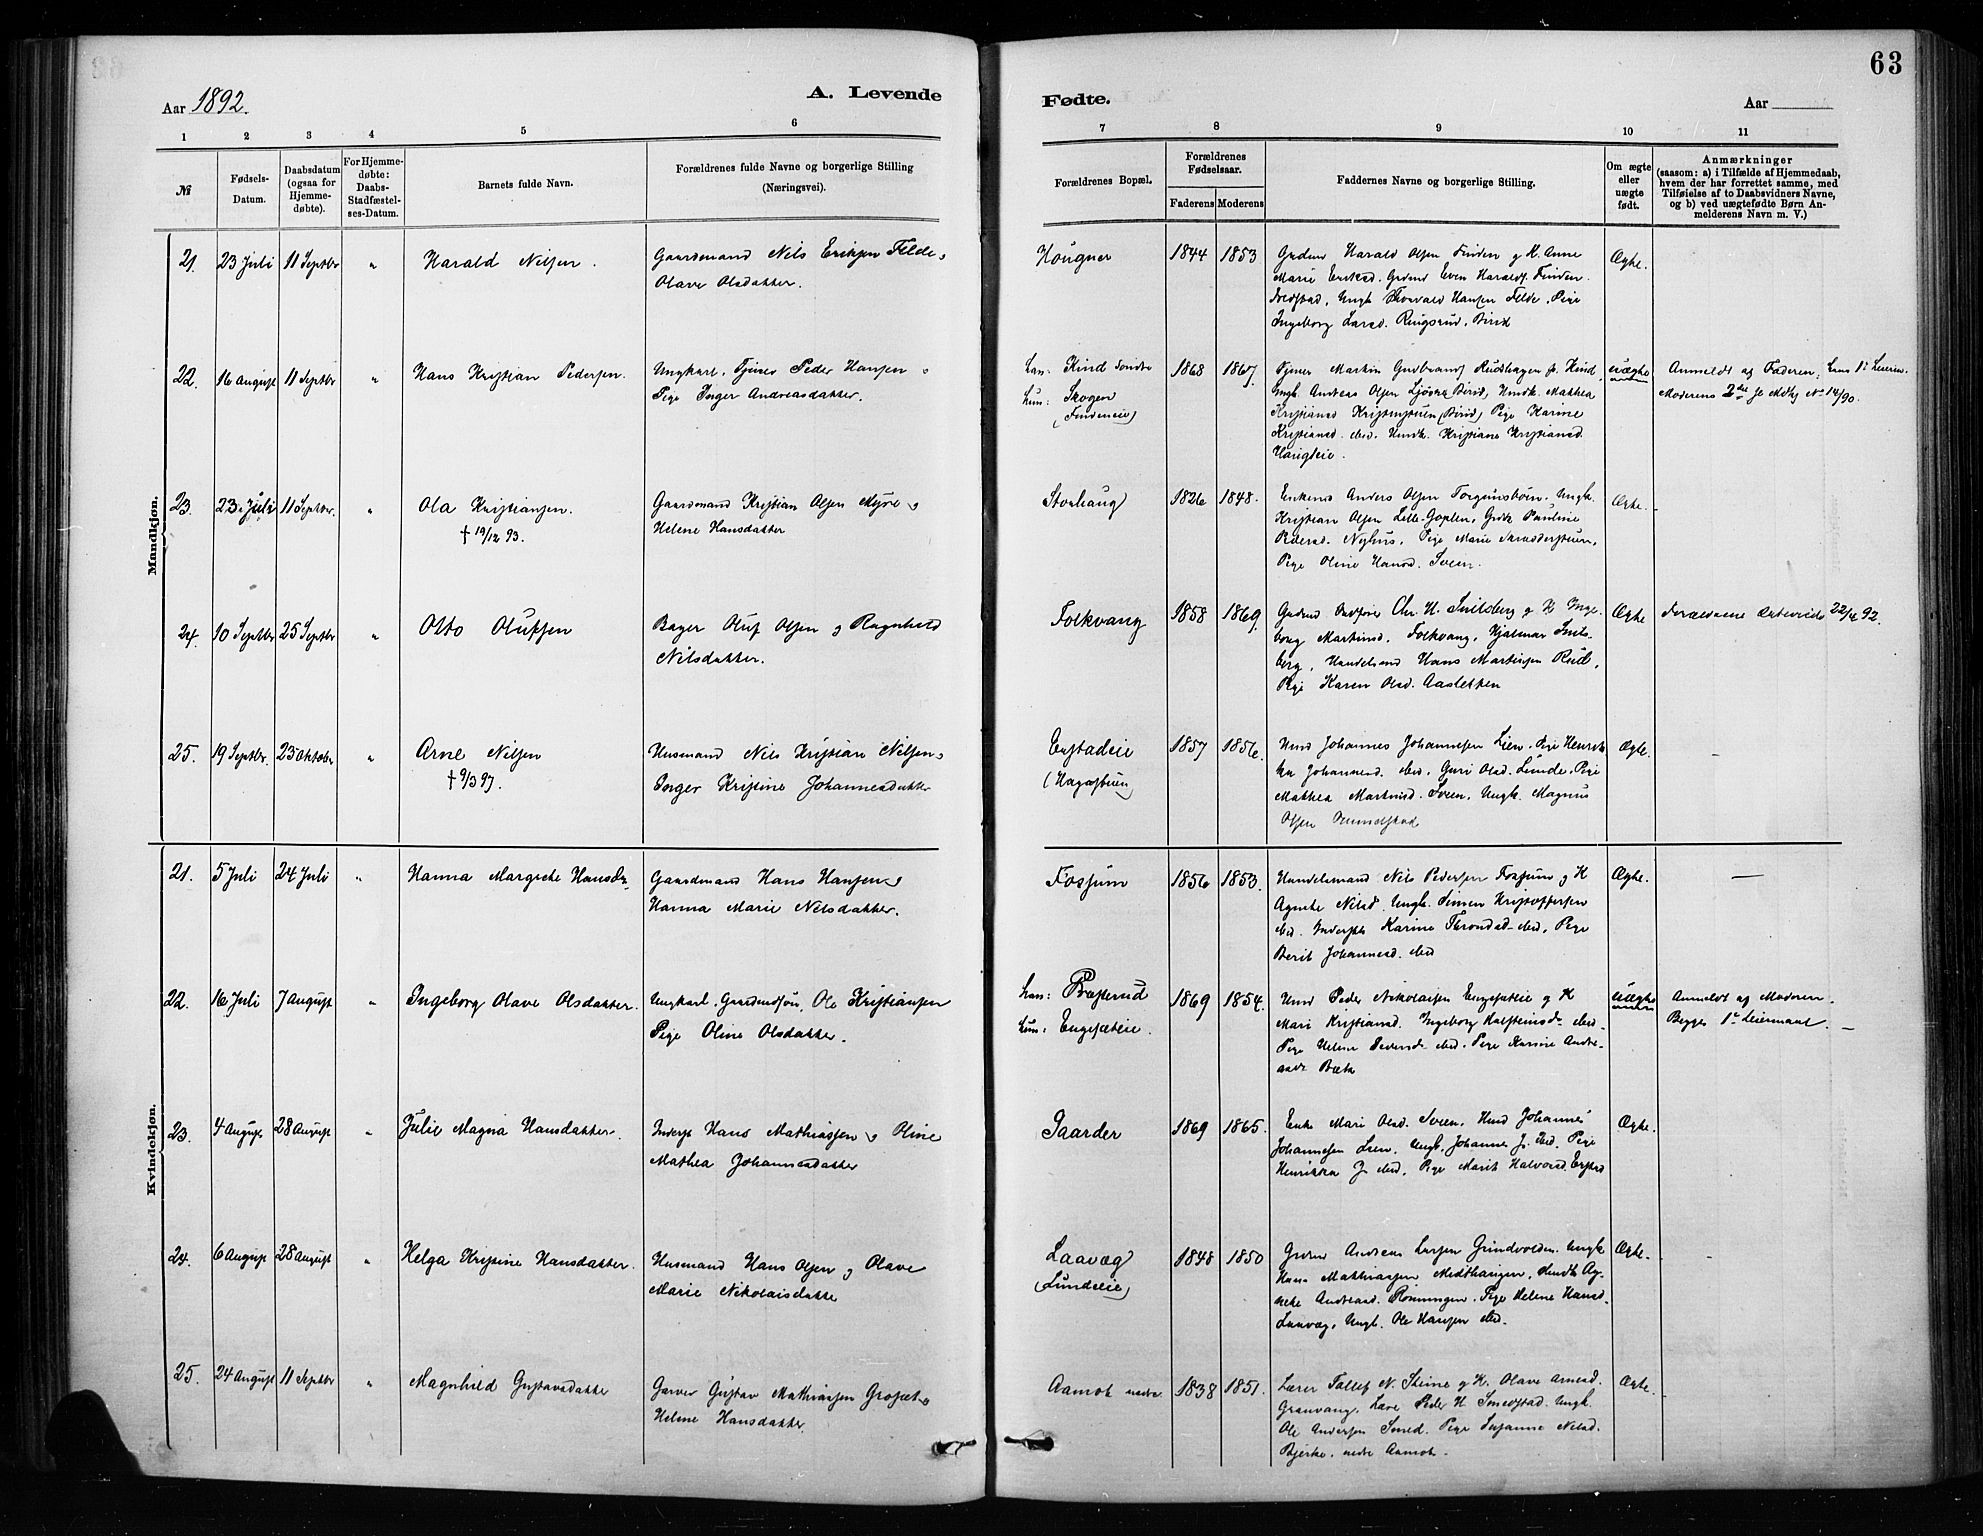 63
Aar 1892.
A. Levende
Fødte.
Aar
1 2 3 4 5 6
7 8 9 10 11
№
Fødsels-
Datum.
Daabsdatum
(ogsaa for
Hjemme-
døbte).
For Hjemme-
døbte:
Daabs-
Stadfæstel-
ses-Datum.
Barnets fulde Navn.
Forældrenes fulde Navne og borgerlige Stilling
(Næringsvei).
Forældrenes Bopæl.
Forældrenes
Fødselsaar.
Faderens Moderens
Faddernes Navne og borgerlige Stilling.
Om ægte
eller
uægte
født.
Anmærkninger
(saasom: a) i Tilfælde af Hjemmedaab,
hvem der har forrettet samme, med
Tilføielse af to Daabsvidners Navne,
og b) ved uægtefødte Børn An-
melderens Navn m. V.)
Mandkjøn.
21. 23 Juli 11 Septbr " Harald Nilsen.
Gaardmand Nils Eriksen Felde
Olave Olsdatter.
Hougner 1844 1853
Grdmd Harald Olsen Finden g K. Anne
Marie Ericksd. Grdmd Even Haralds. Finden
Ungk Thorvald Hansen Felde, Pige
Ingeborg Larsd. Ringsrud, Birid
Ægte.
22. 16 August 11 Septbr " Hans Kristian Pedersen.
Ungkarl, Tjener Peder Hansen
Pige Inger Andreasdatter.
han: Kind søndre
hun: Skogen
(Findeneie)
1868 1867
Tjener Martin Gulbrands Rudshagen p. Kind,
Ungk. Andreas Olsen Birid, Mathea
Kristiansd Kristenstuen (Birid) Pige Karine
Kristiansd. ibid. Kristiane Kristiansd.
uægte
Anmeldt af Faderen, hans 1ste Leierm.
Moderens 2det No 14/90.
23. 23 Juli 11 Septbr. " Ola Kristiansen.
† 19/12 93.
Gaardmand Kristian Olsen Myre
Helene Hansdatter
Storhaug 1826 1848.
Enkemd Anders Olsen Torgunsbøen. Ungk.
Kristian Olsen Lille-Goplen, Pauline
Pedersd. Nyhus, Pige Marie
Pige Oline Hansd. Sveen.
Ægte.
24. 10 Septbr 25 Septbr " Otto Olufsen
Bager Oluf Olsen og Ragnhild
Nilsdatter.
Folkvang 1858 1869.
Grdmd Chr. H. Smitsberg g K Inge-
borg Martinsd. Folkvang, Hjalmar Smits-
berg, Handelsmd Hans Martinsen Rud,
Pige Karen Olsd. Aasletten
Ægte
Forældrene 22/4 92.
25. 19 Septbr. 23 Oktober " Arne Nilsen
† 9/3 97.
Husmand Nils Kristian Nilsen
Inger Kristine Johannesdatter
Enstadeie
(Hagastuen)
1857 1856.
Husmd Johannes Johannesen Lien. Pige Henrik-
ka Johannesd. ibid, Guri Olsd. Lunde, Pige
Mathea Martinsd. Sveen, Ungk. Magnus
Olsen
Ægte.
Kvindekjøn.
21. 5 Juli 24 Juli " Hanna Margrete Hansdr
Gaardmand Hans Hansen
Hanna Marie Nilsdatter.
Fossum 1856 1853.
Handelsmand Nils Pedersen Fossum g K
Agnete Nilsd. Ungk. Simen Kristoffersen
ibid. Inderst Karine Throndsd. ibid, Pige
Berit Johannesd. ibid
Ægte.
22. 16 Juli 7 August " Ingeborg Olave Olsdatter.
Ungkarl, Gaardmdsøn, Ole Kristiansen
Pige Oline Olsdatter.
han: Præsterud
hun: Engesæteie.
1869 1854.
Husmd Peder Nikolaisen Engesæteie g K
Mari Kristiansd. Ingeborg Halsteinsdr ibid
Pige Helene ibid. Pige Karine Andre-
asdr
uægte
Anmeldt af Moderen.
Begges 1ste Leiermaal.
23. 4 August 28 August " Julie Magna Hansdatter.
Inderst Hans Mathiassen Oline
Mathea Johannesdatter
Gaarder 1869 1865.
Enke Mari Olsd. Sveen, Husmd Johannes
Johannesen Lien, Ungk. Johannes J. ibid. Pige
Henrikka J. ibid, Pige Marit Halvorsd. Enstad
Ægte.
24. 6 August 28 August " Helga Kristine Hansdatter.
Husmand Hans Olsen og Olave
Marie Nikolaisdatter
Laavæg
(Lundeeie)
1848 1850
Grdmd Andreas Larsen Grindvolden. Ungk
Hans Mathiassen Midthaugen, Ag-
nete Andreasd. Rønningen. Pige Helene Hansd.
Laavæg, Ungk. Ole Hansen ibid.
Ægte.
25. 24 August 11 Septbr " Magnhild Gustavsdatter
Garver Gustav Mathiassen Grosæt
Helene Hansdatter.
Aamot nedre 1838 1851.
Lærer Tollef N. Steine g K. Olave
Granvang, Peder H Smedstad. Ungk.
Ole Andersen Smed. Pige Susanne Nilsd.
Bjerke, nedre Aamot.
Ægte.